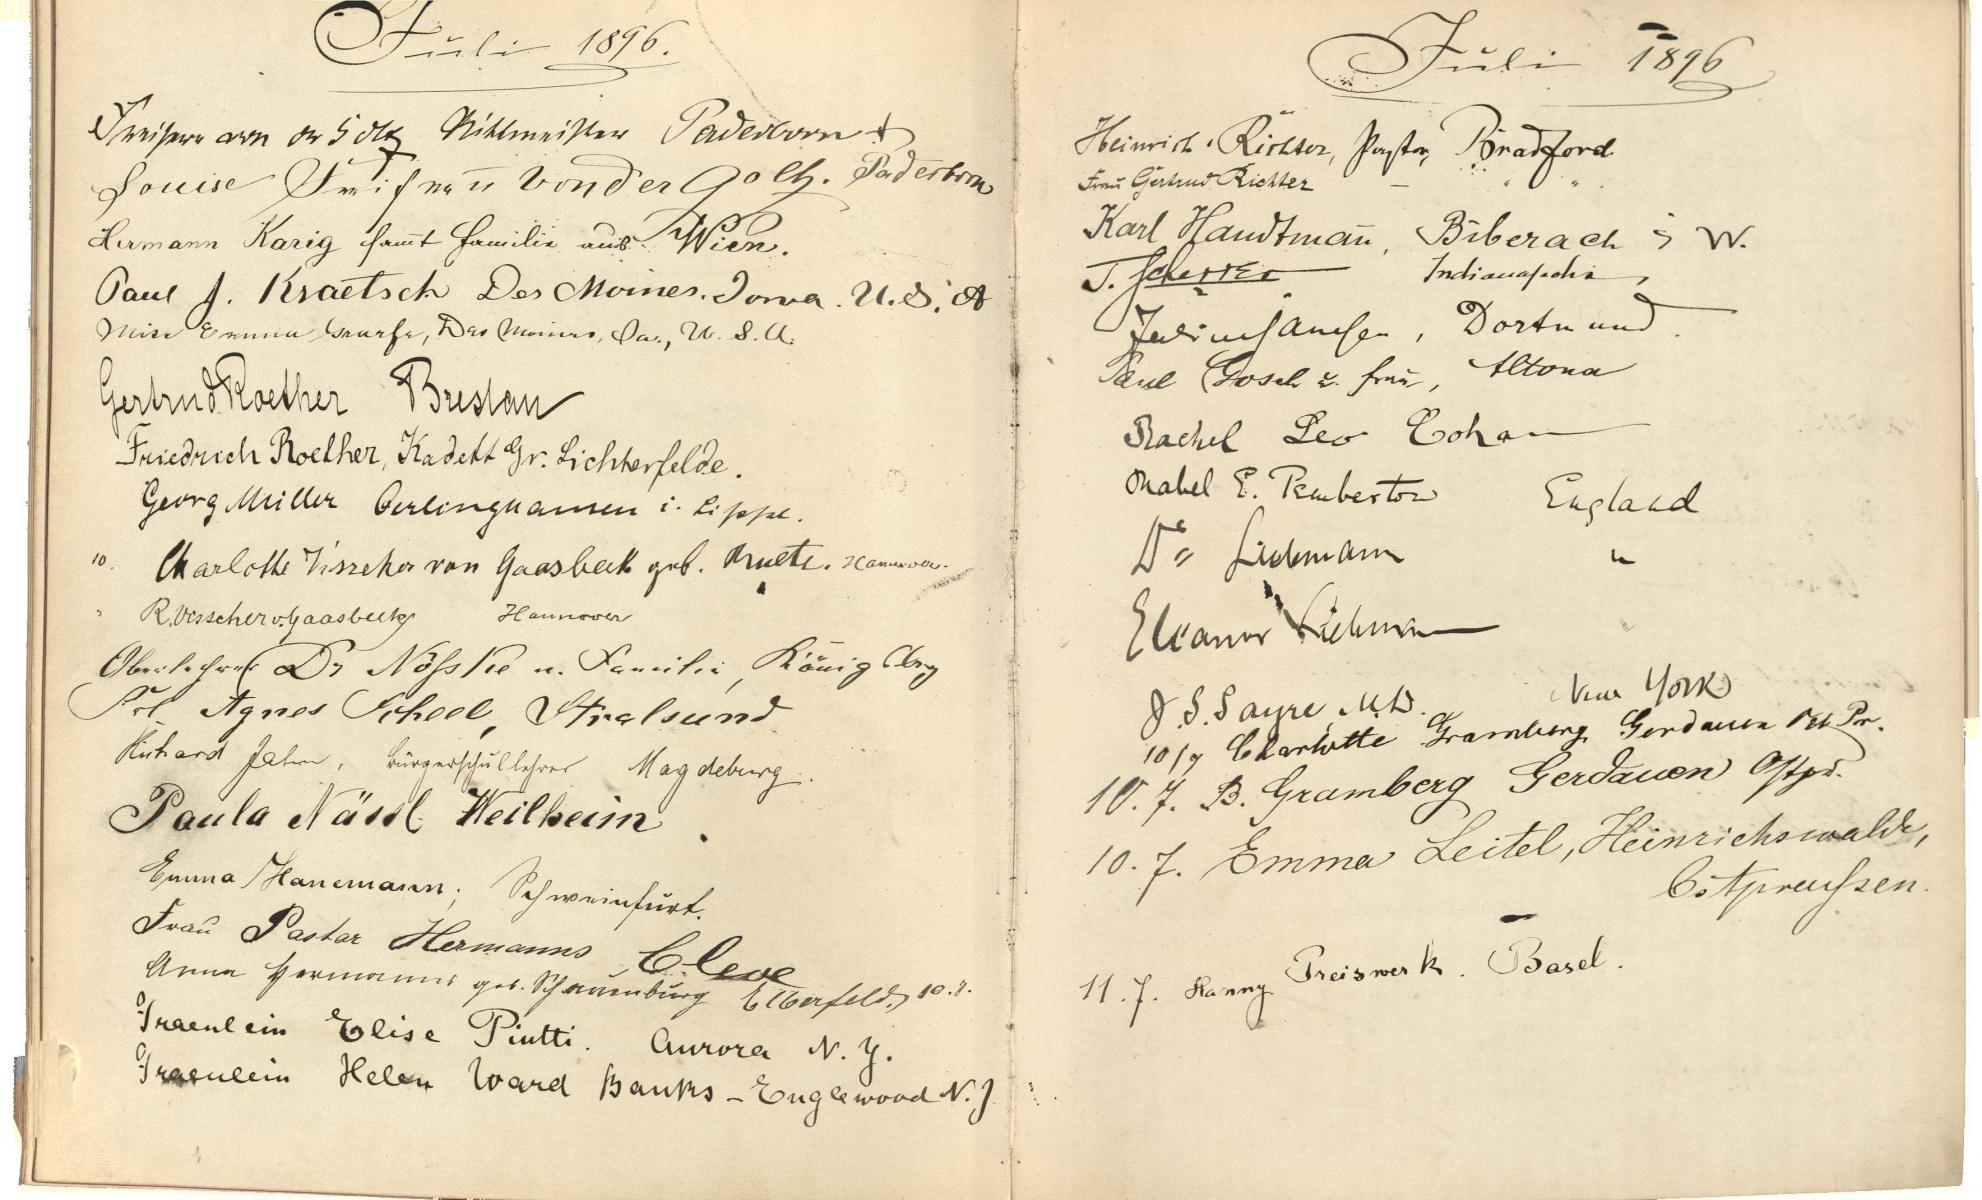 Juli 1896.
Rittmeister Paderborn
Louise Freifrau von der Goltz. Paderborn
Hermann Karig samt Familie aus Wien.
Paul J. Kraetsch Des Moines. Iowa. U.S.A
Miss Emma, Des Moines, Ia., U.S.A.
Gertrud Roether Breslau
Friedrich Roether, Kadett Gr. Lichterfelde.
Georg Müller Oerlinghausen i. Lippe.
10. Charlotte Visscher von Gaasbeek geb. Hannover.
" R. Visscher v. Gaasbeek Hannover
Oberlehrer Dr Nösske u. Familie, Königsberg
Frl. Agnes Scheel, Stralsund
Richard Jahn, Bürgerschullehrer Magdeburg.
Paula Nässl Weilheim
Emma Hanemann, Schweinfurt.
Frau Pastor Hermanns Cleve
Anna Hermanns geb. Schauenburg Elberfeld, 10.7.
Fraeulein Elise Piutti. Aurora N.Y.
Fraeulein Helen Ward Banks – Englewood N.J
Juli 1896
Heinrich Richter, Pastor, Bradford
Frau Gertrud Richter – " " .
Karl Handtmañ, Biberach i W.
J. Scherrer Indianapolis,
Julius Janssen, Dortmund.
Paul Gosch u. Frau, Altona
Rachel Leo Cohan
Mabel E. Pemberton England
Dr. Liebmann "
Eleanor Liebmann
J. S. Sayre, M.D. New York
10/7 Charlotte Gramberg Gerdauen Ost Pr.
10. 7. B. Gramberg Gerdauen Ostpr.
10. 7. Emma Leitel, Heinrichswalde,
Ostpreussen.
11. 7. Hanny Preiswerk. Basel.